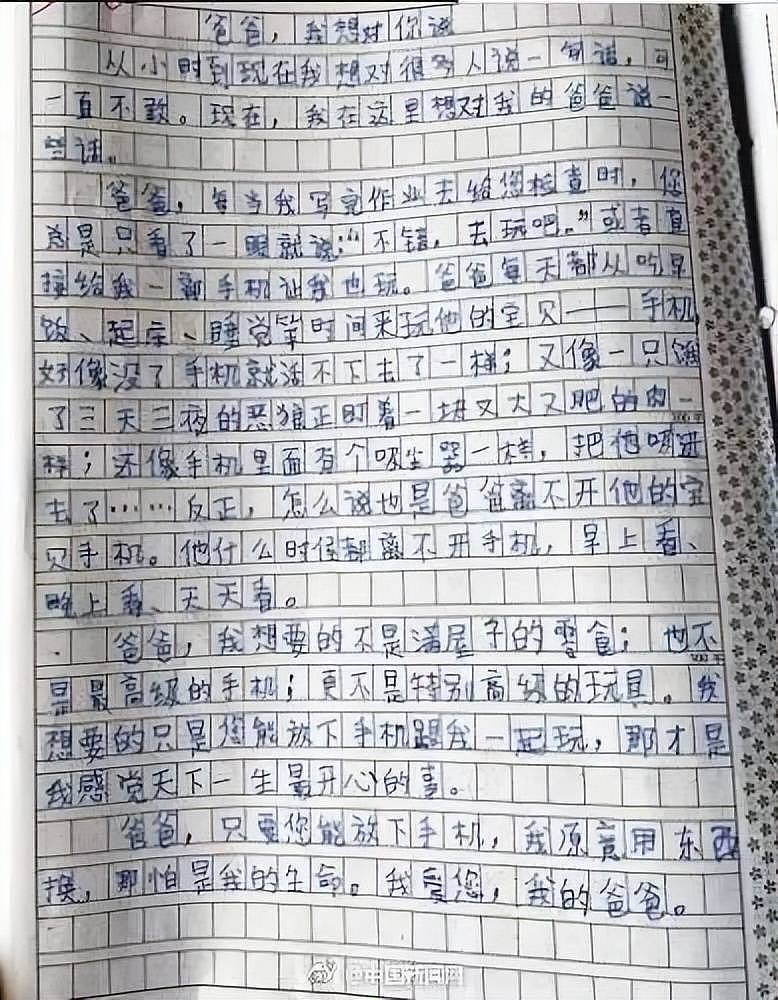 爸爸，我想对你说
从小时到现在我想对很多人说一句话，可
一直不敢。现在，我在这里想对我的爸爸说一
些话。
爸爸，每当我写完作业去给您检查时，您
总是只看了一眼就说：“不错，去玩吧。”或者直
接给我一部手机让我也玩。爸爸每天都从吃早
饭、起床、睡觉等时间来玩他的宝贝——手机
好像没了手机就活不下去了一样；又像一只饿
了三天三夜的恶狼正盯着一块又大又肥的肉一
样；还像手机里面有个吸尘器一样，把他吸进
去了……反正，怎么说也是爸爸离不开他的宝
贝手机。他什么时候都离不开手机，早上看、
晚上看、天天看。
爸爸，我想要的不是满屋子的零食；也不
是最高级的手机；更不是特别高级的玩具。我
想要的只是您能放下手机跟我一起玩，那才是
我感觉天下一生最开心的事。
爸爸，只要您能放下手机，我原意用东西
换，那怕是我的生命。我爱您，我的爸爸。
@中国新闻网